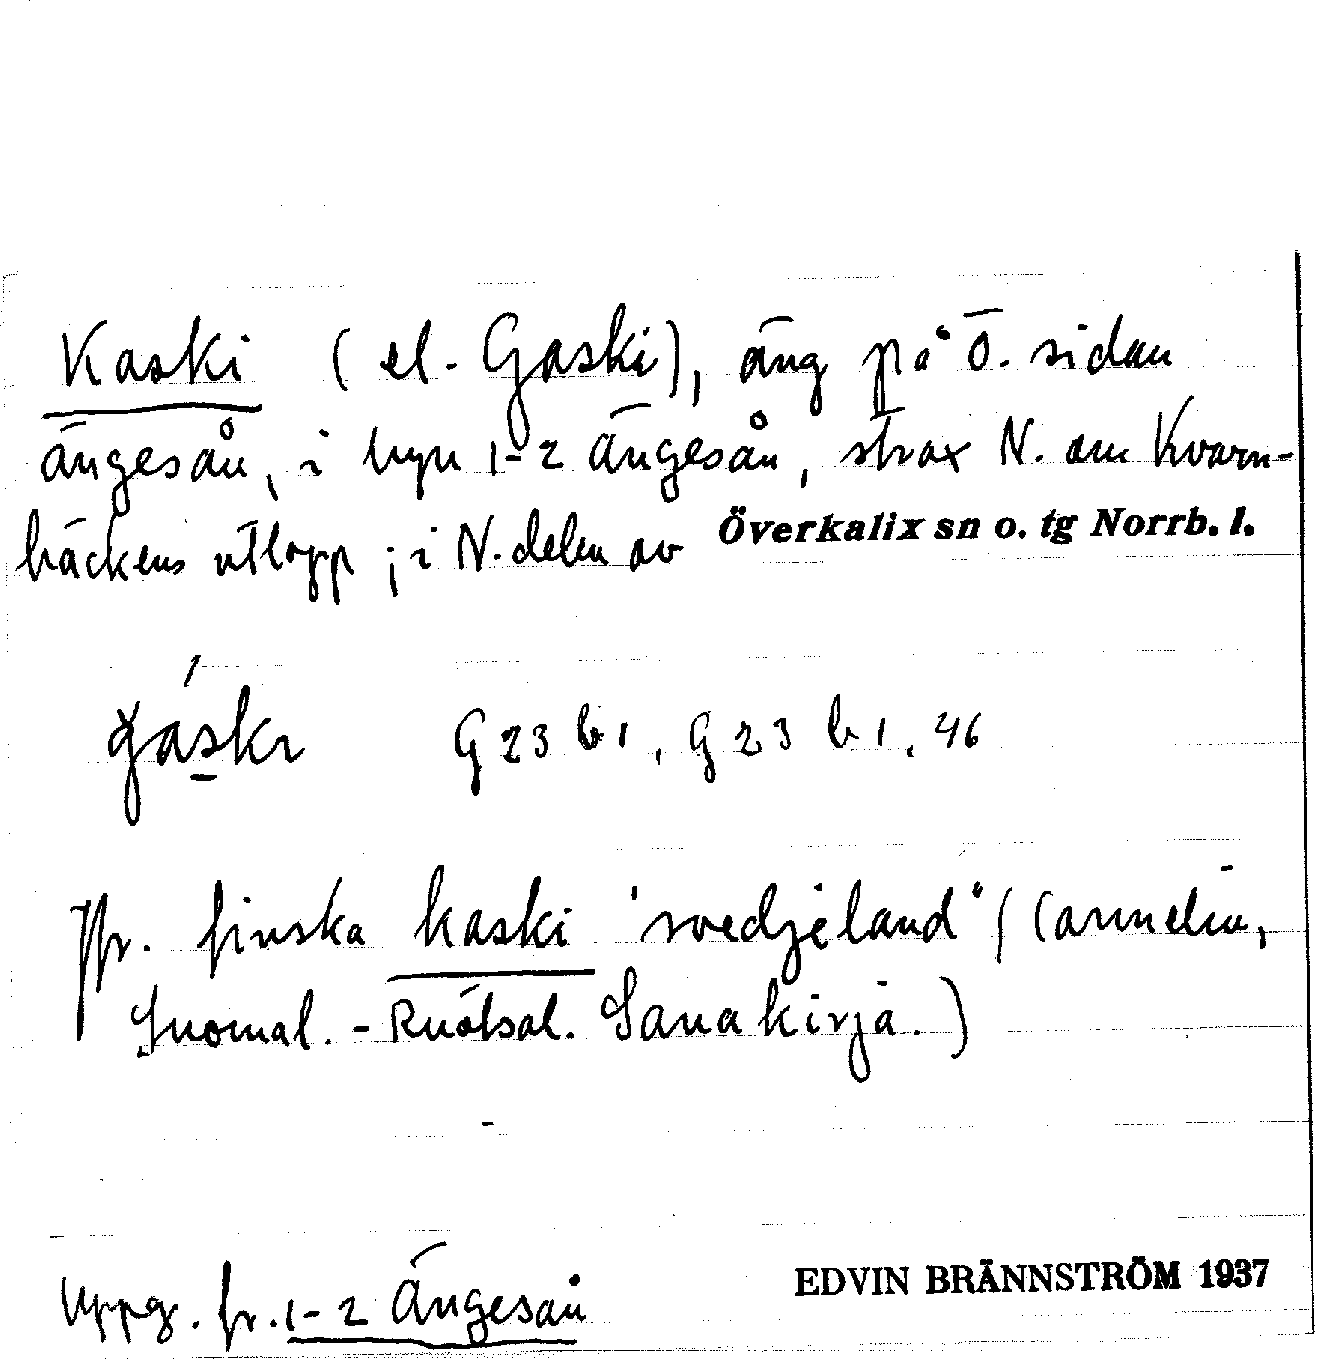 Kaski (el. Gaski), äng på Ö. sidan
ängesån, i byn 1-2 Ängesån, strax N. om Kvarn-
bäckens utlopp; i N. delen av Överkalix sn o. tg Norrb. l.
G 23 b 1, G 23 b 1, 46
Jfr. finska kaski 'svedjeland' (Cannelin,
Suomal. - Ruotsal. Sanakirja.)
Uppg. fr. 1-2 Ängesån
EDVIN BRÄNNSTRÖM 1937